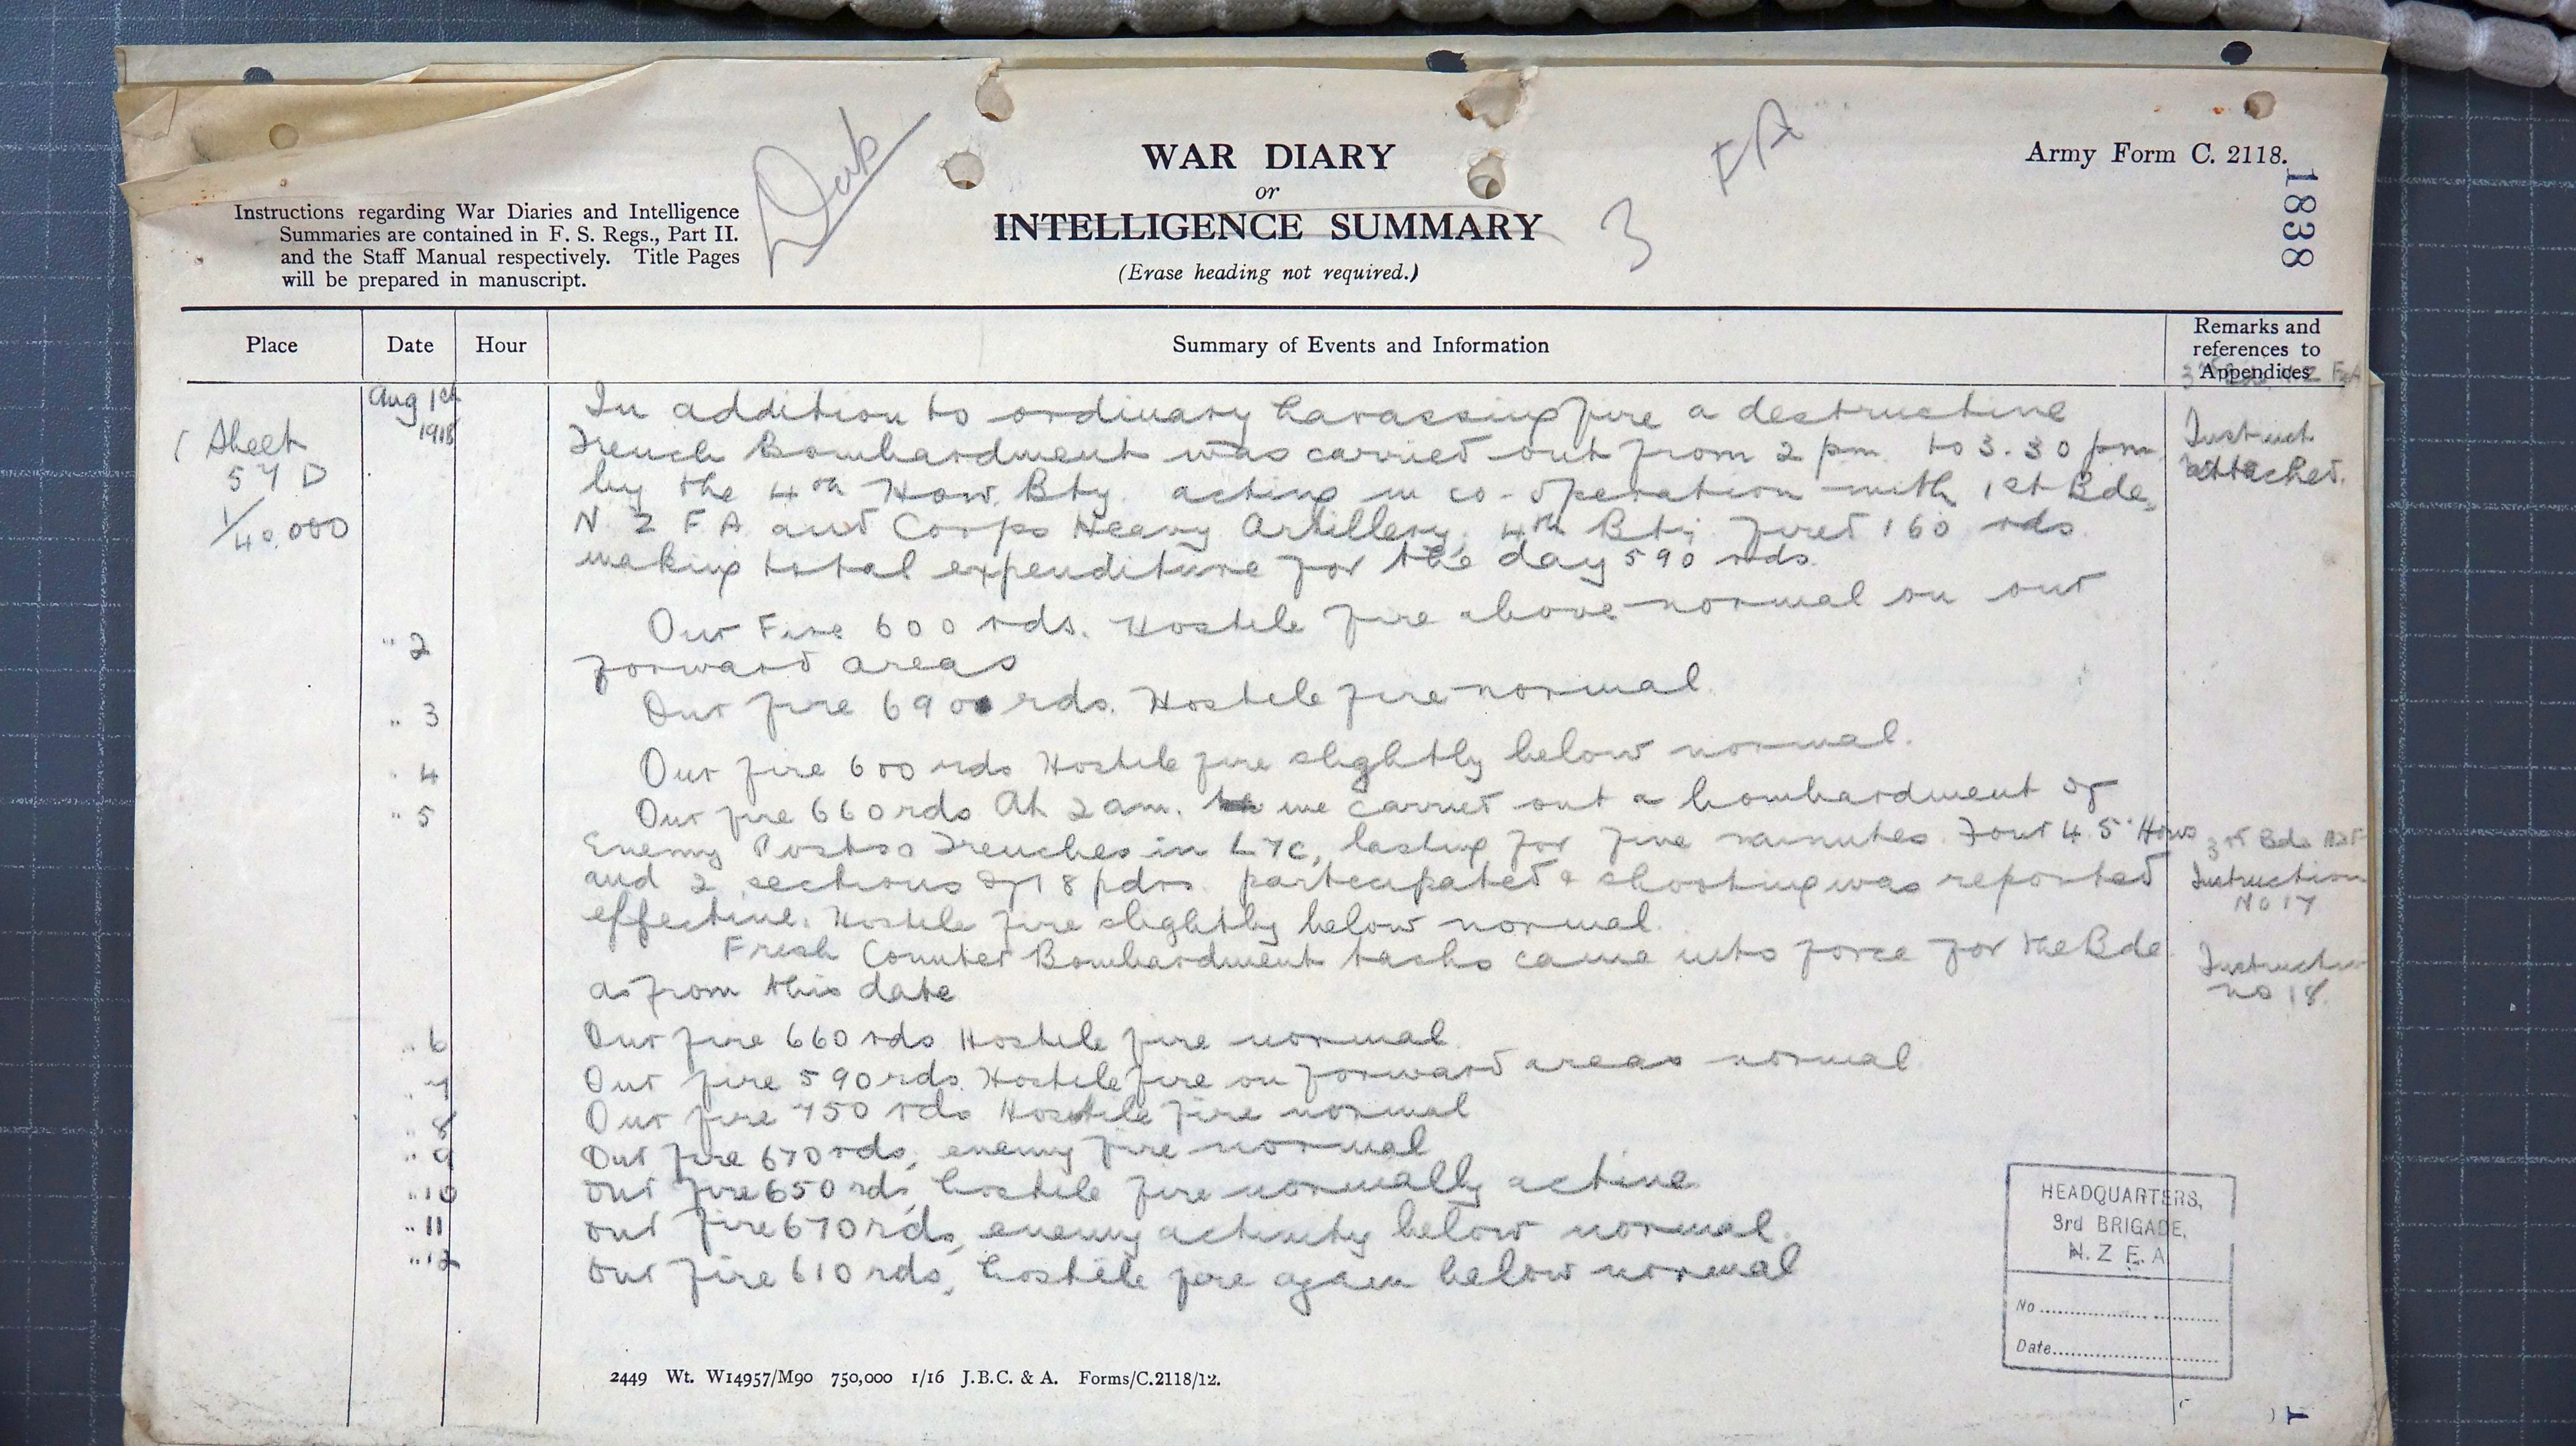 WAR DIARY
or
INTELLIGENCE SUMMARY
(Erase heading not required.)
3
FA
Army Form C. 2118.
1838
Instructions regarding War Diaries and Intelligence
Summaries are contained in F. S. Regs., Part II.
and the Staff Manual respectively. Title Pages
will be prepared in manuscript.
Place
Date
Hour
Summary of Events and Information
Remarks and
references to
Appendices
Sheet
57 D
1/40.000
Aug 1st
1918
In addition to ordinary harassing fire a destructive
Trench Bombardment was carried out from 2 pm to 3.30 pm
by the 4th How. Bty. acting in co-operation with 1st Bde,
N Z F A and Corps Heavy Artillery. 4th Bty fired 160 rds
making total expenditure for the day 590 rds.
Instruct
attached.
" 2
Our Fire 600 rds. Hostile fire above normal on our
forward areas
" 3
Our fire 690 rds. Hostile fire normal.
" 4
Our fire 600 rds Hostile fire slightly below normal.
" 5
Our fire 660 rds At 2 am. we carried out a bombardment of
Enemy Posts & Trenches in L7c, lasting for five minutes. Four 4.5" Hows
and 2 sections of 18 pdrs. participated & shooting was reported
effective. Hostile fire slightly below normal.
3rd Bde
Instruction
No 17
Fresh Counter Bombardment tasks came into force for the Bde
as from this date
Instruction
no 18.
" 6
Our fire 660 rds Hostile fire normal.
" 7
Our fire 590 rds. Hostile fire on forward areas normal.
" 8
Our fire 750 rds Hostile fire normal
" 9
Our fire 670 rds, enemy fire normal
" 10
Our fire 650 rds, hostile fire normally active
" 11
Our fire 670 rds, enemy activity below normal.
" 12
Our fire 610 rds, hostile fire again below normal
HEADQUARTERS,
3rd BRIGADE,
N. Z F. A
No
Date
2449 Wt. W14957/M90 750,000 1/16 J.B.C. & A. Forms/C.2118/12.